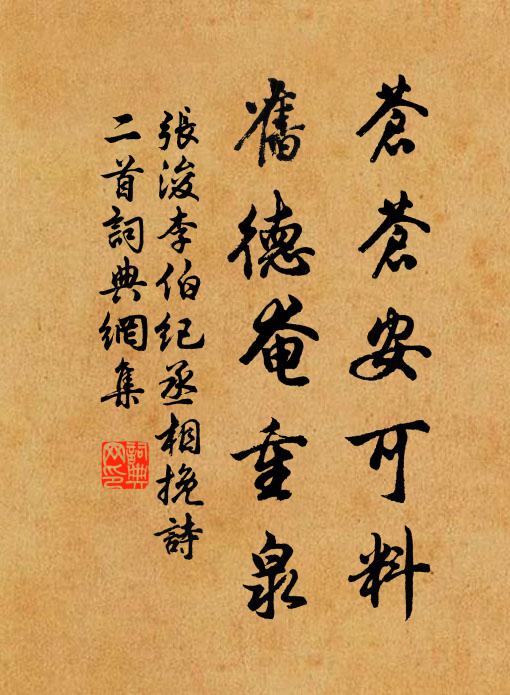 蒼蒼安可料
舊德奄重泉
張浚李伯紀丞相挽詩
二首詞典網集
詞典
网印